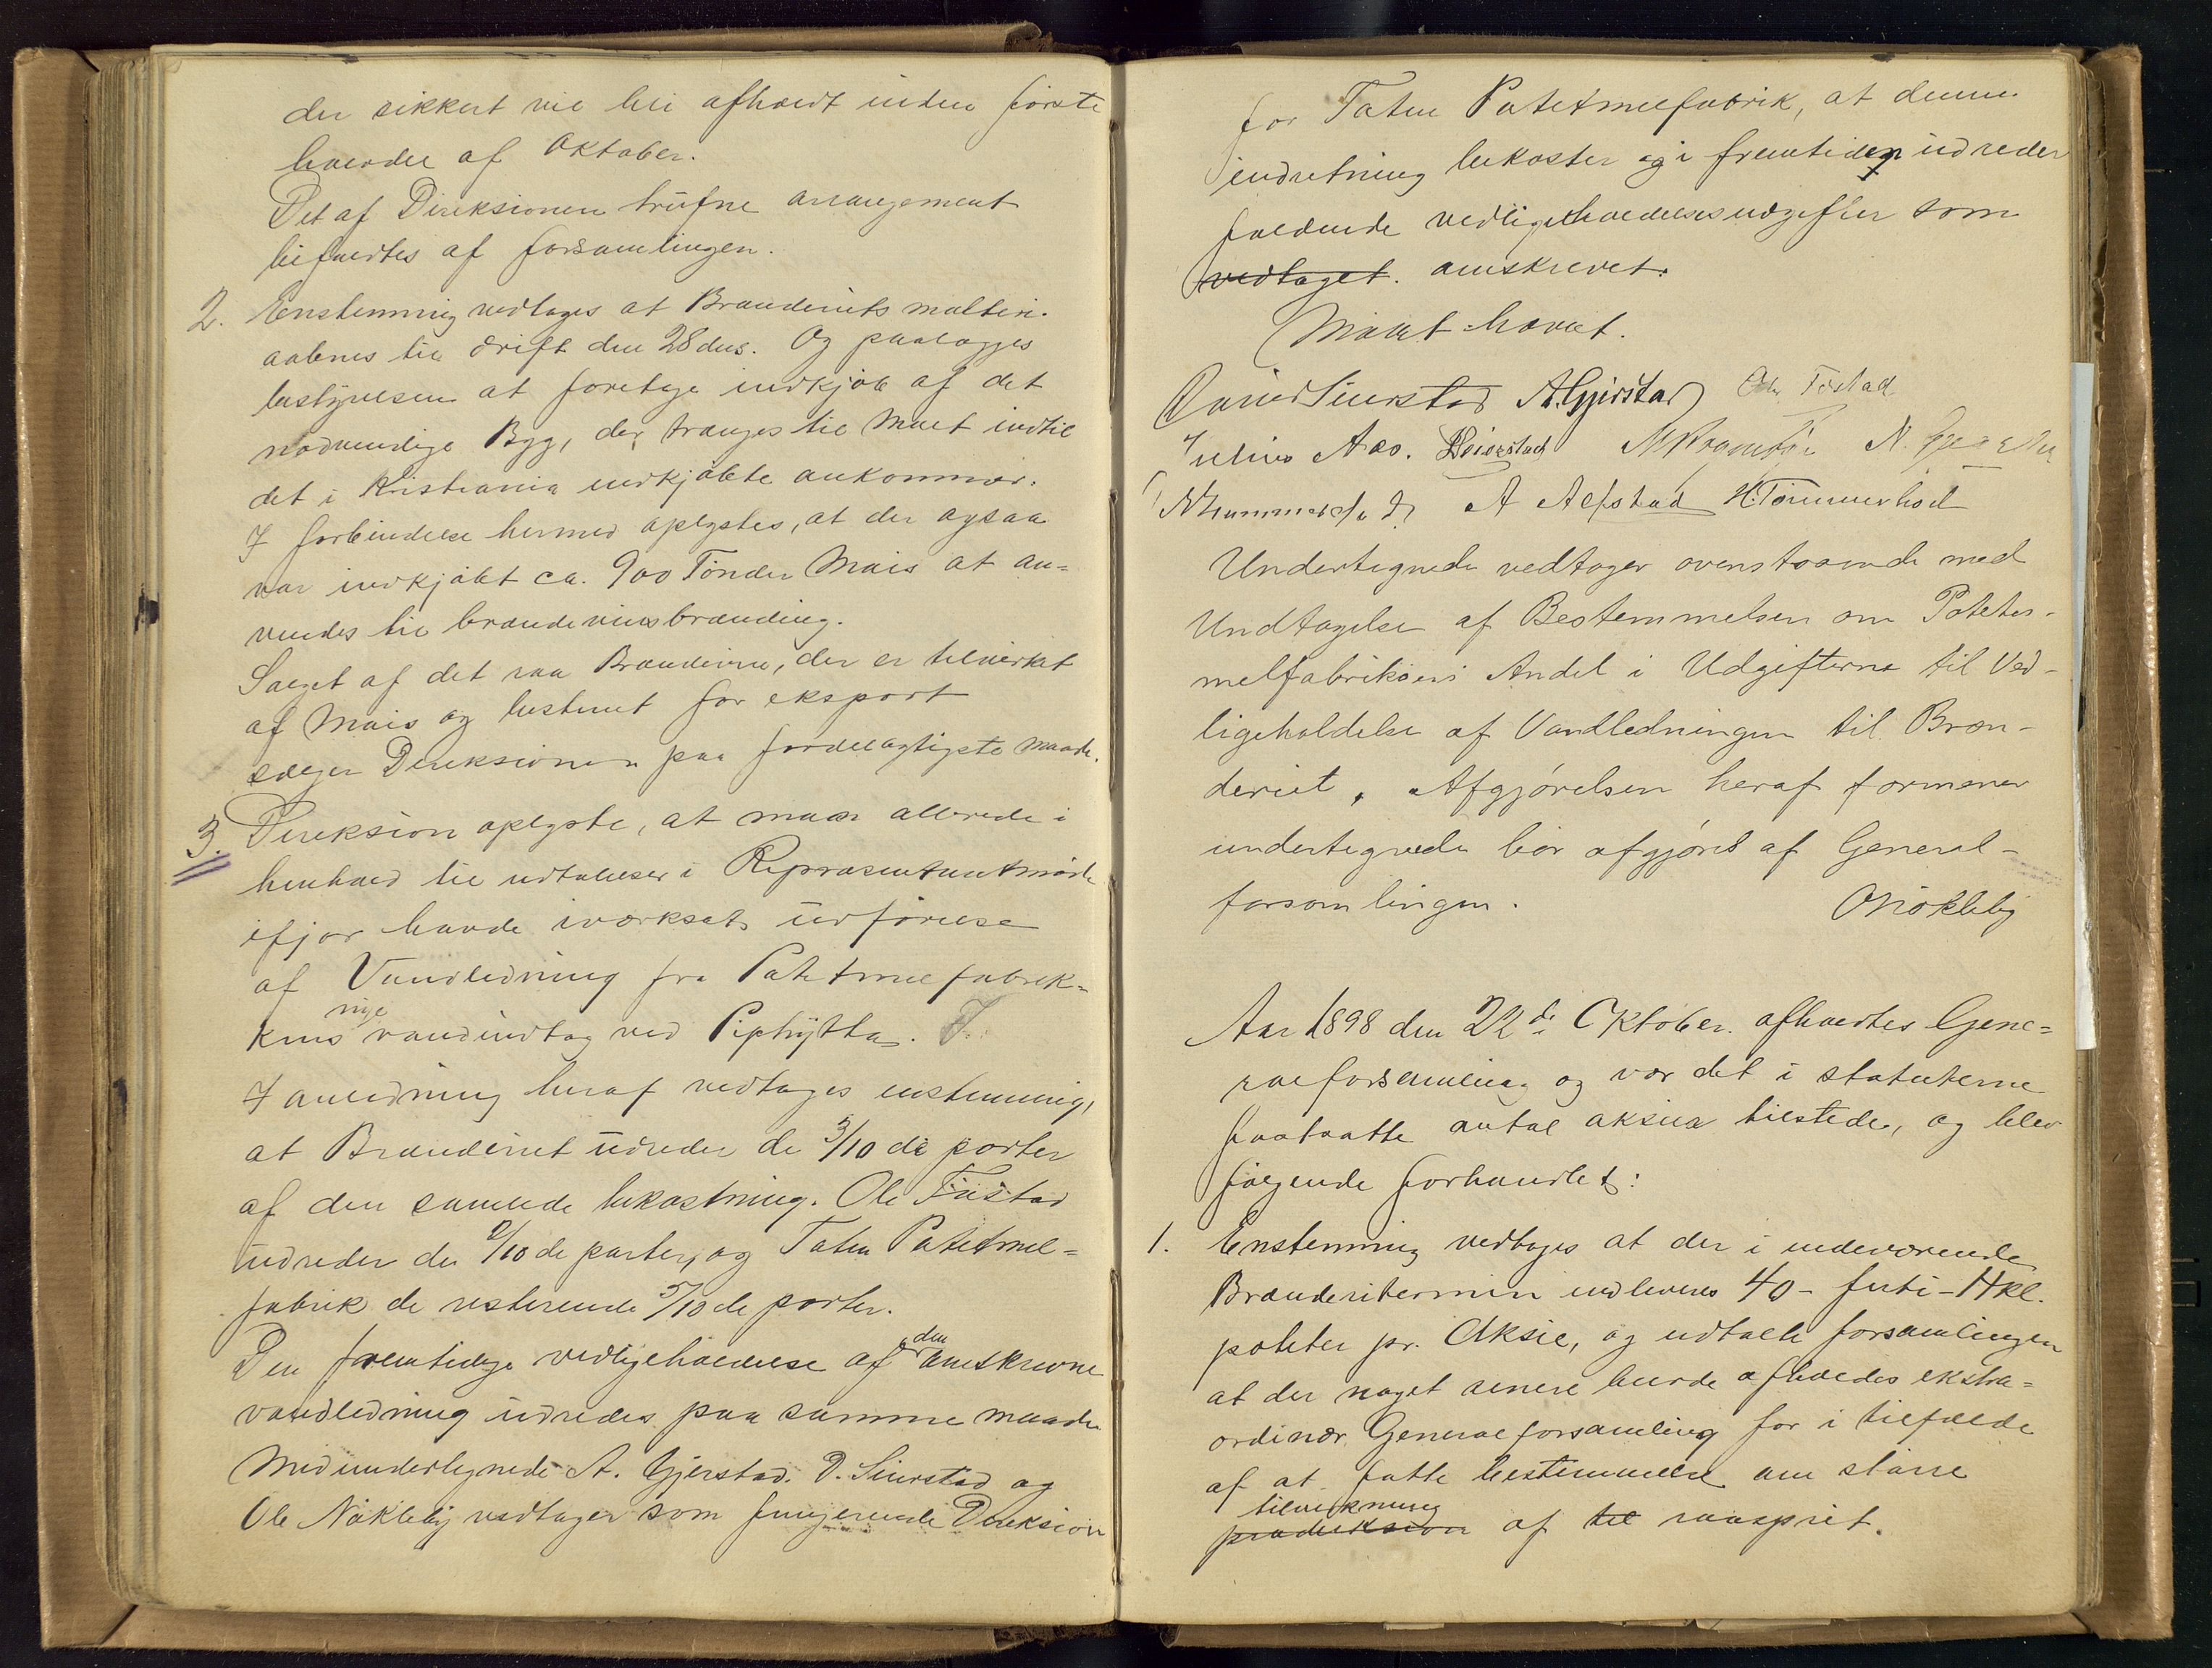 der sikkert vil bli afholdt inden første
halvdel af Oktober.
Det af Direksionen trufne arrangement
bifaldtes af forsamlingen.
2. Enstemmig vedtages at Brænderiets malteri
aabnes til drift den 28 ds. Og paalægges
bestyrelsen at foretage indkjøb af det
nødvendige Byg, der trænges til Malt indtil
det i Kristiania indkjøbte ankommer.
I forbindelse hermed oplystes, at der ogsaa
var indkjøbt ca. 900 Tønder Mais at an=
vendes til brændevinsbrænding.
Salget af det raa Brændevin, der er tilvirket
af Mais og bestemt for eksport
sælger Direksionen paa fordelagtigste maade.
3. Direksion oplyste, at man allerede i
henhold til udtalelser i Repræsentantmøde
ifjor havde iværksat udførelse
af Vandledning fra Potetmelfabrik=
kens nye vandindtag ved Piphytta.
I anledning heraf vedtages enstemmig,
at Brænderiet udreder de 3/10 de parter
af den samlede bekostning. Ole Føstad
udreder de 2/10 de parter, og Toten Potetmel=
fabrik de resterende 5/10 de parter.
Den fremtidige vedligeholdelse af den omskrevne
vandledning udredes paa samme maade
Medundertegnede A. Gjerstad. D. Sivestad og
Ole Nøkleby vedtager som fungerende Direksion
for Toten Potetmelfabrik, at denne
indretning bekoster og i fremtiden udreder
faldende vedligeholdelsesudgifter som
vedtaget. omskrevet.
Mødet hævet.
A. Gjerstad Ole Føstad
Julius Aas.
A Alfstad H. Tømmerhol
Undertegnede vedtager ovenstaaende med
Undtagelse af Bestemmelsen om Potetes-
melfabrikens Andel i Udgifterne til Ved-
ligeholdelse af Vandledningen til Bræn-
deriet. Afgjørelsen heraf formener
undertegnede bør afgjøres af General-
forsamlingen.
ONøkleby
Aar 1898 den 22 de Oktober. afholdtes Gene=
ralforsamling og var det i statuterne
fastsatte antal aksier tilstede, og blev
følgende forhandlet:
1. Enstemmig vedtages at der i indeværende
Brænderitermin indleveres 40 - førti - Hkl.
poteter pr. Aksie, og udtalte forsamlingen
at der noget senere burde afholdes ekstra=
ordinær Generalforsamling for i tilfælde
af at fatte bestemmelse om større
tilvirkning
produksion af til raasprit.